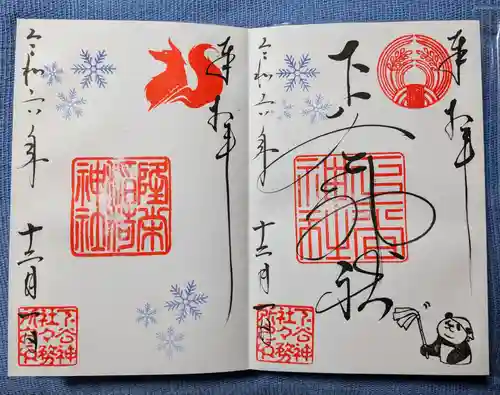 奉拝
下谷神社
下谷
神社
令和六年
十二月一日
下谷神
社々務
奉拝
隆栄
稲荷
神社
令和六年
十二月一日
下谷神
社々務